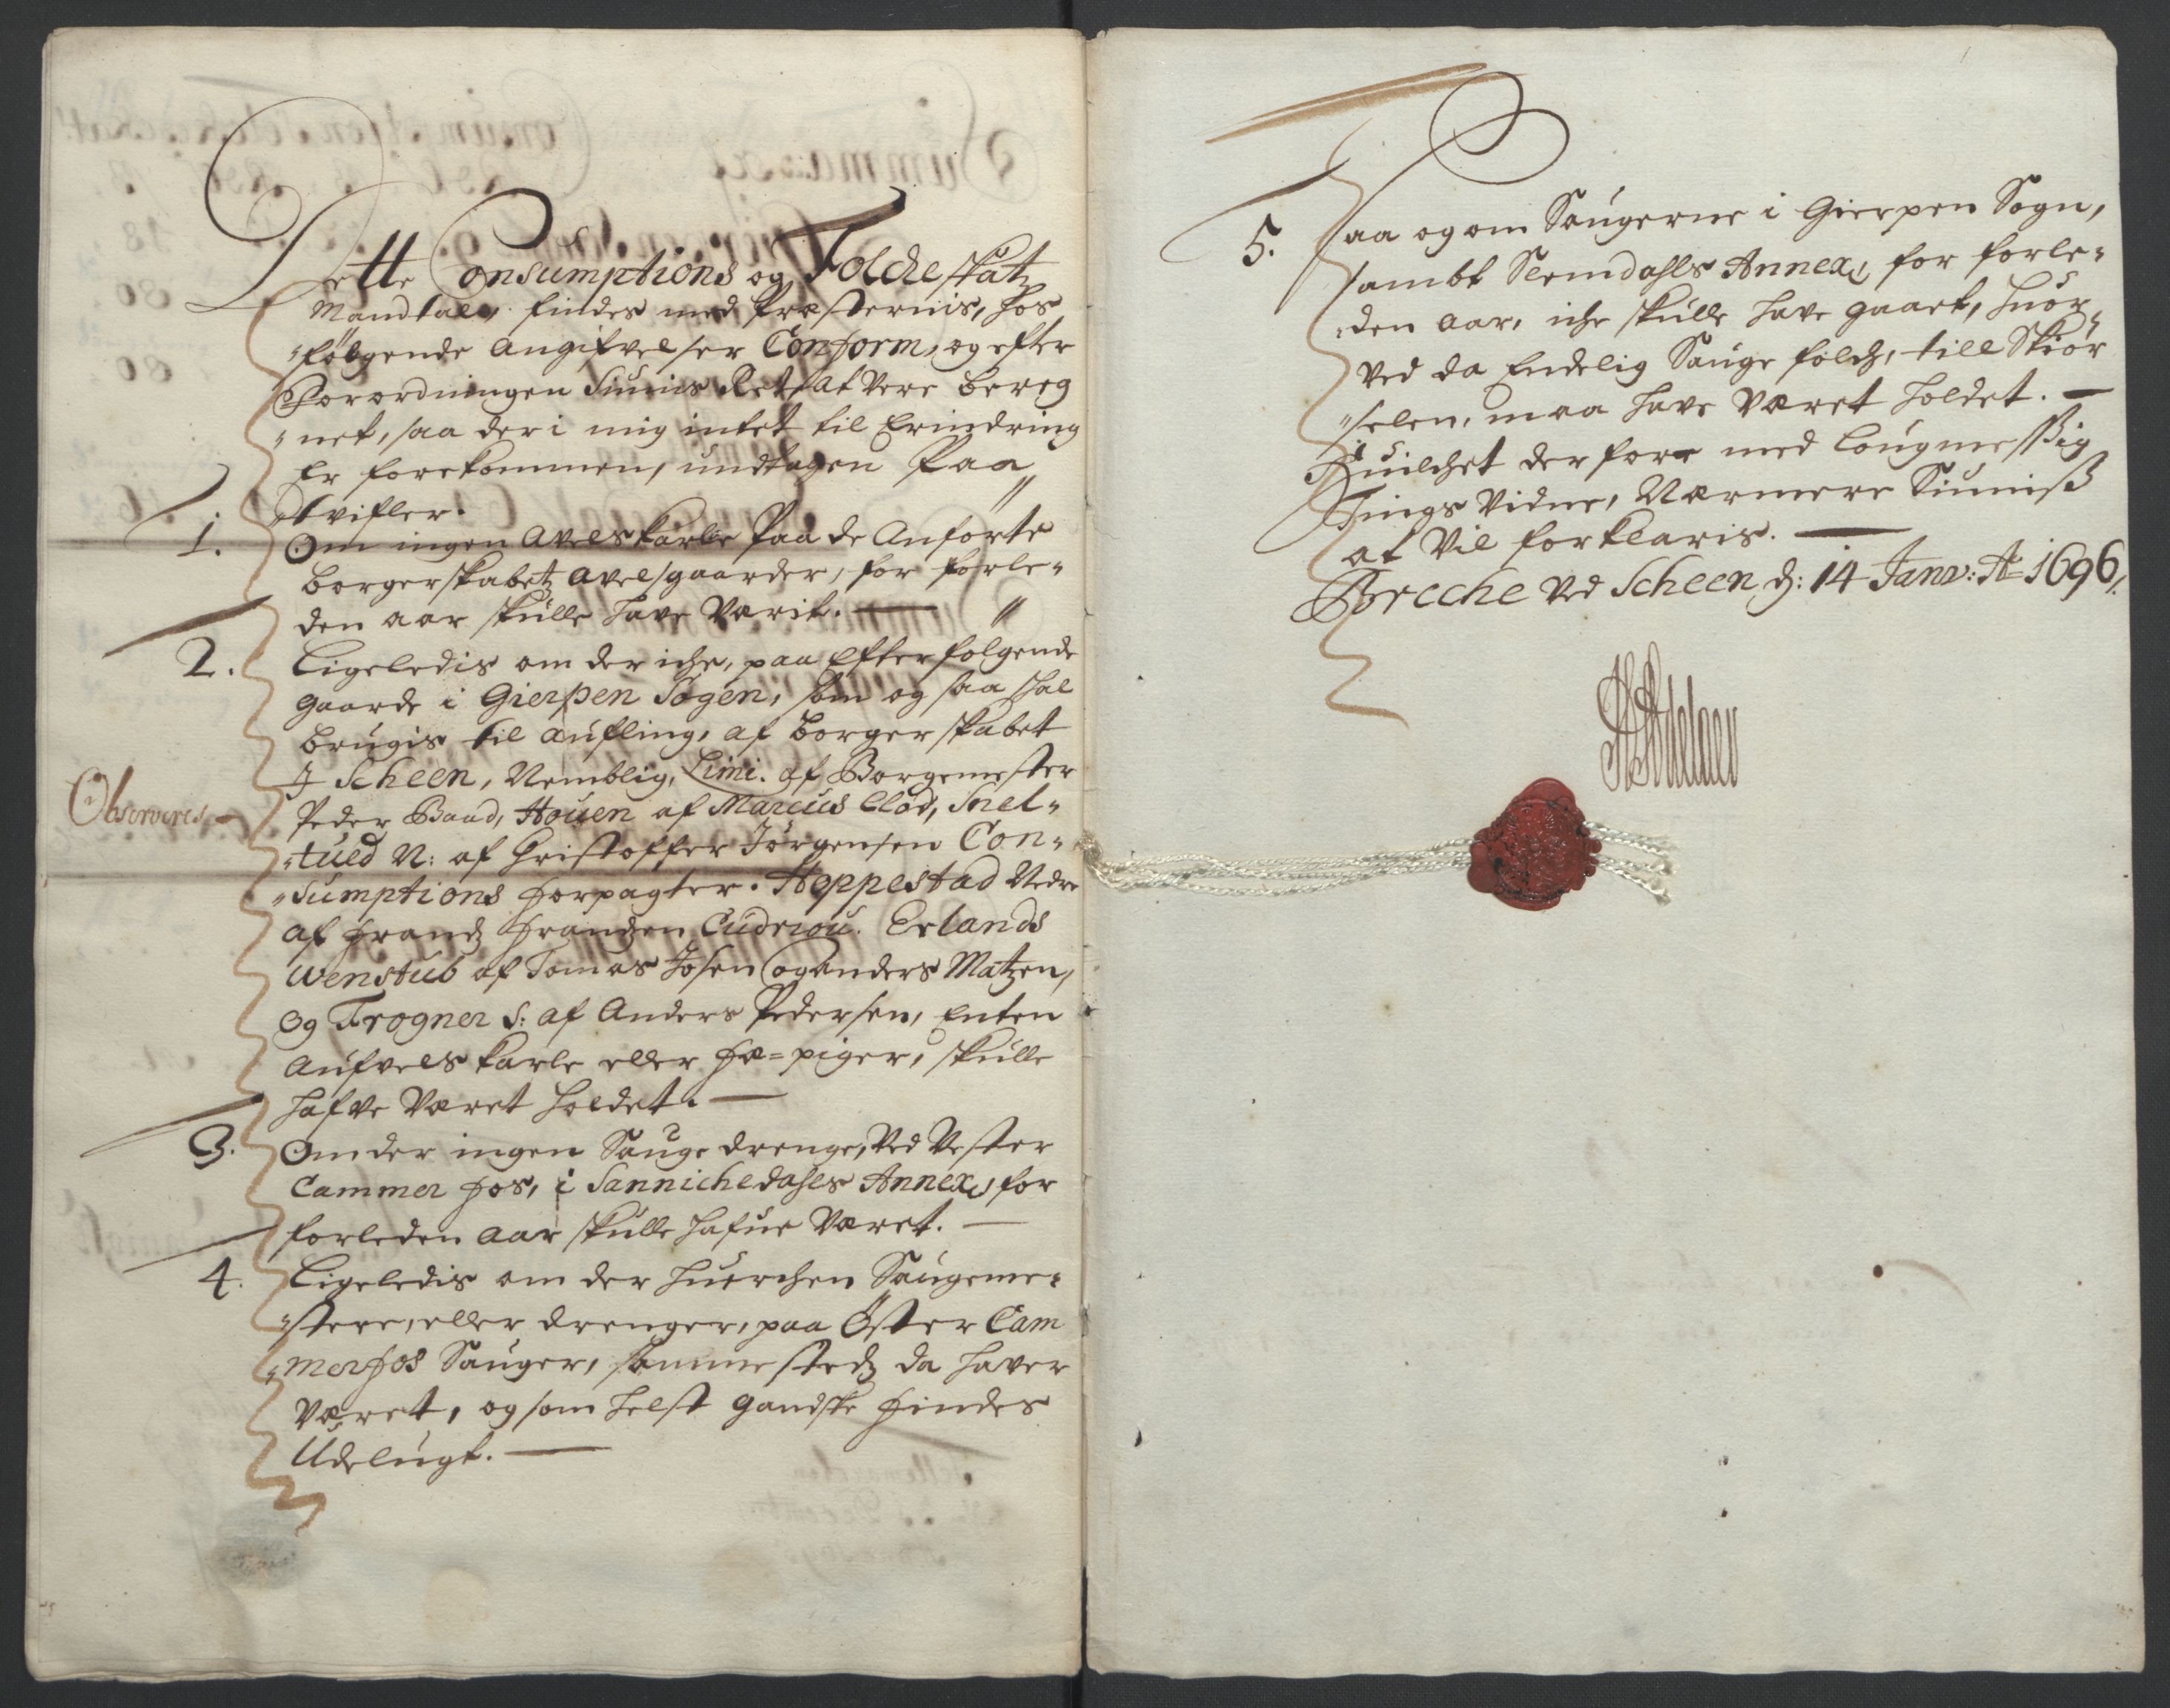 Dette Consumptions og Folcheskatz
Mandtal, findes med Præsternis, hos
"følgende Angifvelser Conform, og efter
Forordningen Siunis Ret at Vere bereg
"net, saa der i mig intet til Erindring
Er forekommen, undtagen Paa
"tvifler.
1. Om ingen Avelskarle Paa de Anførte
borgerskabetz Avelsgaarder, for forle"
den aar skulle have Værit.
2. Ligeledis om der iche, paa Efterfølgende
gaarde i Gierpen Sogen, som og saa skal
brugis til Aufling, af borgerskabet
I Scheen, Nemblig, Limi. af Borgemester
Observeris Peder Baad, Houen af Marcus Clod, Snel"
"tued N: af Christoffer Jørgensen Con"
"Sumptions Forpagter. Hoppestad Nedre
af Frandz Frandzen Cudriou. Erlands
Wenstub af Tomas Josen og Anders Matzen,
og Frogner S: af Anders Pedersen, Enten
Aufvels karle eller Fæ=piger, skulle
hafve Været holdet.
3. Om der ingen Sauge drenge, Ved Vester
Cammer Fos, i Sannichedahls Annex, for
forleden Aar skulle hafue Været.
4. Ligeledis om der huerchen Saugeme"
"stere, eller drenger, paa Øster Cam
"merfos Sauger, sammestedz da haver
Været, og som helst gandske findes
Udelugt.
5. Saa og om Saugerne i Gierpen Sogn,
sambt Slemdahls Annex, for forle"
"den Aar, iche skulle have gaaet, huor"
Ved da Endelig Sauge folch, till Skiør
"selen, maa have Været holdet.
Huilchet derfore med lougmessig
Tings Vidne, Nærmere Siunisß
at Vil forklaris.
Breche Ved Scheen d: 14 Janv: Ao 1696.
Adelaer